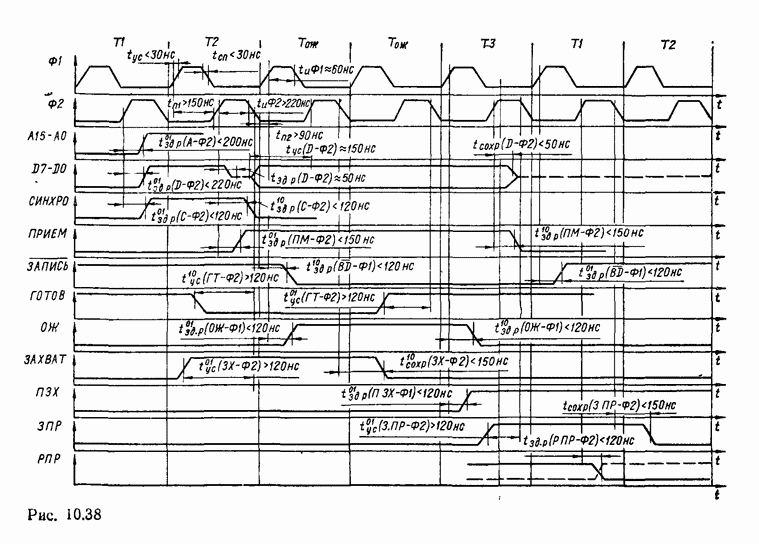 T1 T2 Tож Tож T3 T1 T2
Ф1 tус<30нс tсп<30нс tиФ1≈60нс t
Ф2 tп1>150нс tиФ2>220нс t
tп2>90нс
A15-A0 t⁰¹зд.р(A-Ф2)<200нс tус(D-Ф2)≈150нс tсохр(D-Ф2)<50нс t
D7-D0 tзд.р(D-Ф2)≈50нс t
t⁰¹зд.р(D-Ф2)<220нс
СИНХРО t¹⁰зд.р(C-Ф2)<120нс t
t⁰¹зд.р(C-Ф2)<120нс
ПРИЕМ t⁰¹зд.р(ПМ-Ф2)<150нс t¹⁰зд.р(ПМ-Ф2)<150нс t
ЗАПИСЬ t¹⁰зд.р(ВD-Ф1)<120нс t⁰¹зд.р(ВD-Ф1)<120нс t
t¹⁰ус(ГТ-Ф2)>120нс
ГОТОВ t⁰¹ус(ГТ-Ф2)>120нс t
ОЖ t⁰¹зд.р(ОЖ-Ф1)<120нс t¹⁰зд.р(ОЖ-Ф1)<120нс t
ЗАХВАТ t⁰¹ус(ЗХ-Ф2)>120нс t¹⁰сохр(ЗХ-Ф2)<150нс t
ПЗХ t⁰¹зд.р(ПЗХ-Ф1)<120нс t
tсохр(ЗПР-Ф2)<150нс
ЗПР t⁰¹ус(З.ПР-Ф2)>120нс t
tзд.р(РПР-Ф2)<120нс
РПР t
t
Рис. 10.38